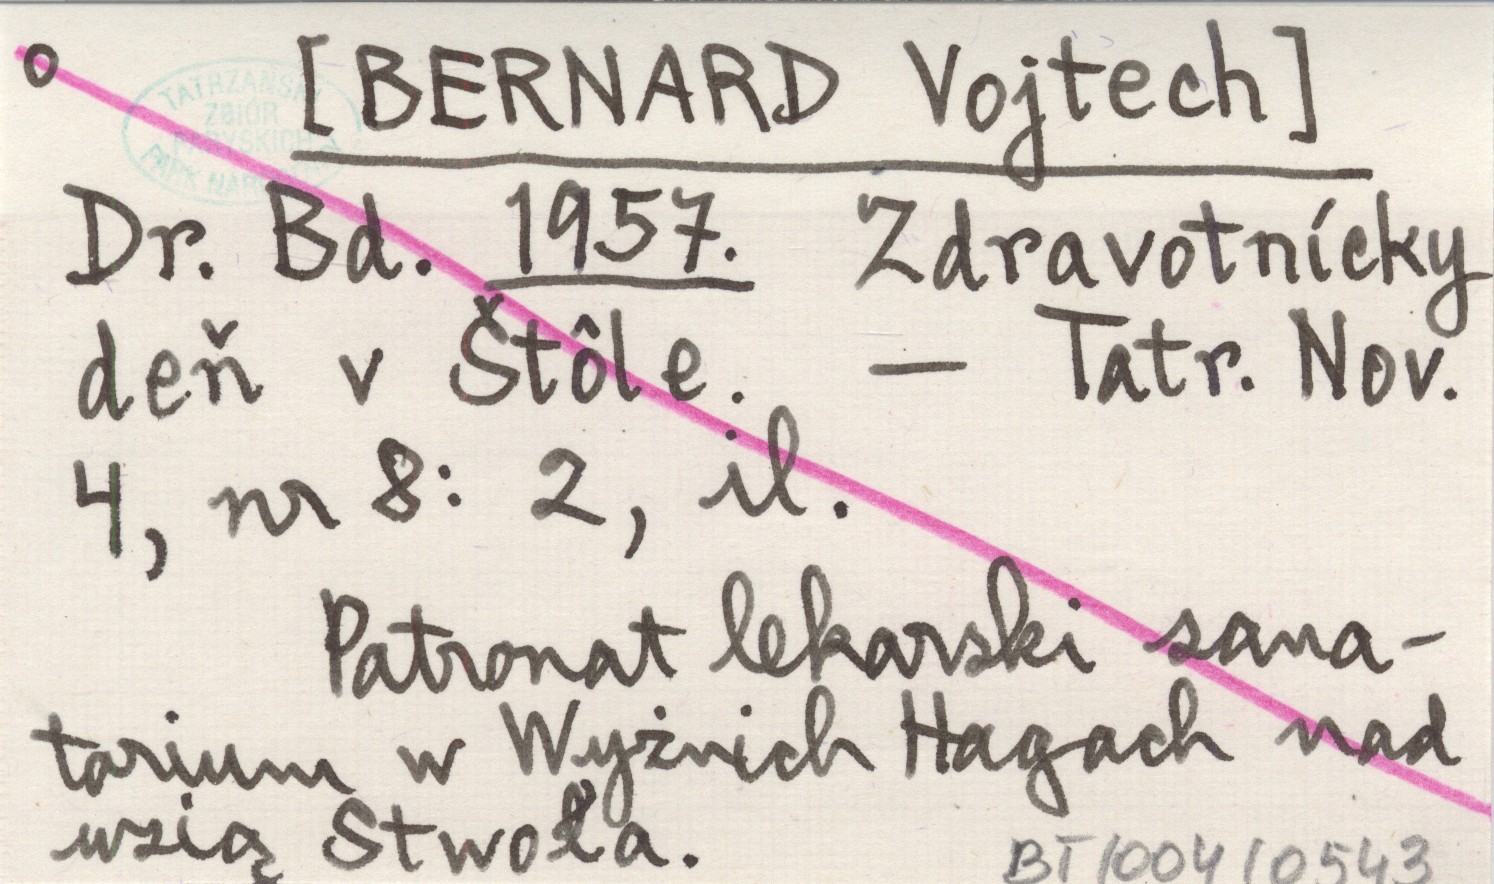 o [BERNARD Vojtech]
TATRZAŃSKI
ZBIÓR
PARYSKICH
PARK NARODOWY
Dr. Bd. 1957. Zdravotnícky
deň v Štôle. — Tatr. Nov.
4, nr 8: 2, il.
Patronat lekarski sana-
torium w Wyżnich Hagach nad
wsią Stwoła.
BT/004/0543